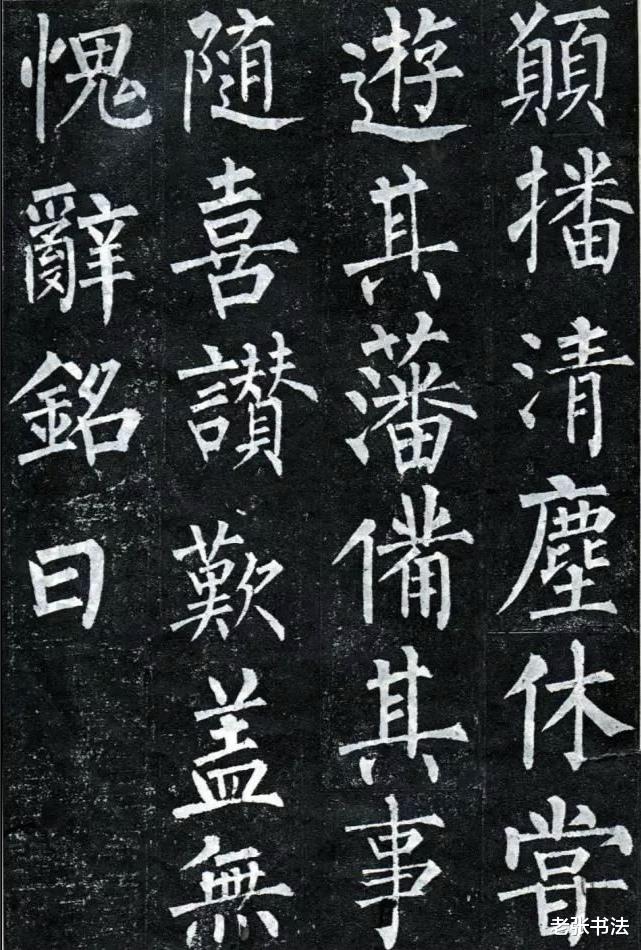 顛播清塵休甞
遊其藩備其事
隨喜讃歎盖無
愧辭銘曰
老张书法